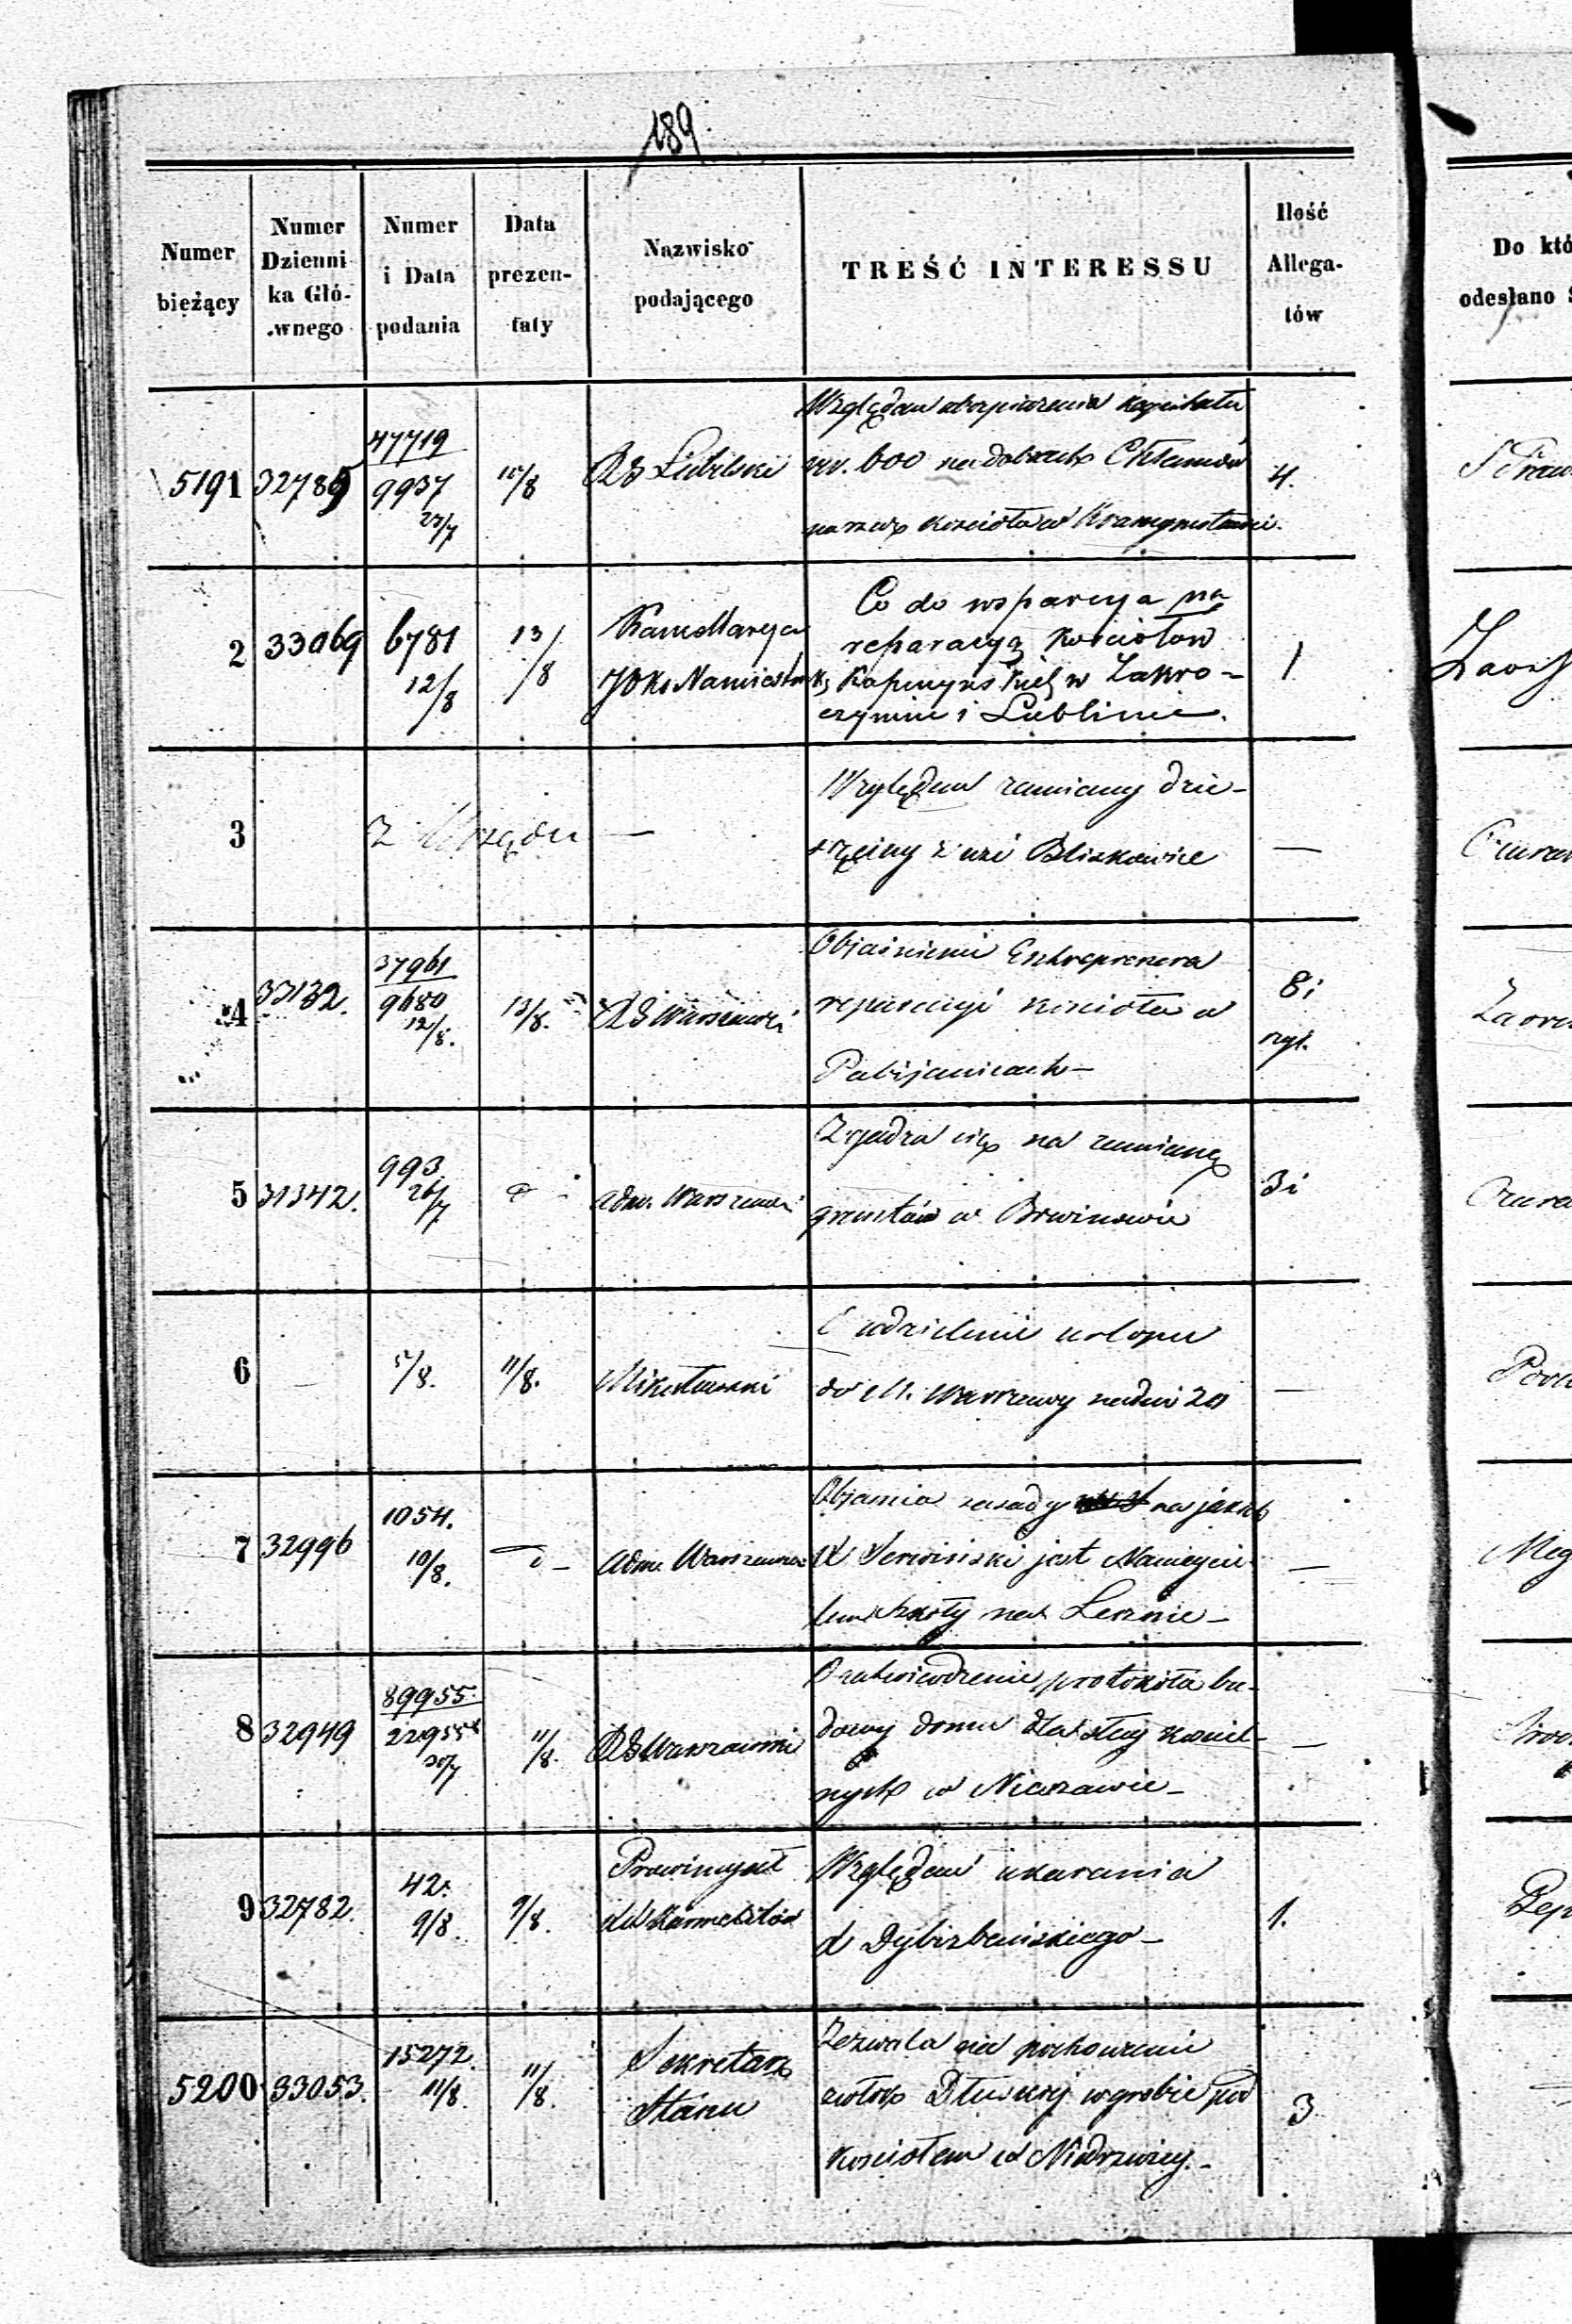 189
Numer bieżący
Numer Dzienni ka Głó- wnego
Numer i Data podania
Data prezen- taty
Nazwisko podającego
TREŚĆ INTERESSU
Ilość Allega- tów
Do któ
odesłano
5191 32785 47719 9937 23/7 /8 RG Lubelski 4.
Względem ubezpieczenia kapitału
rsr. 600 na dobrach Chłaniów
na rzecz kościoła w
2 33069 6781 12/8 13/8 1
JOKs Namiestnika
Co do wsparcia na
reparacyą kościołów
Kapucyńskich w Zakro-
czymiu i Lublinie.
3 Z Urzędu —
Względem zamiany dzie-
sięciny z wsi Bliskowice
—
4 33132. 37961 9680 12/8. 13/8. RG Warszawski 8i
Objaśnienie Entreprenera
reparacyi kościoła w
Pabijanicach —
5 31342. 993 26/7 Adm. Warszawski 3i
Zgadza się na zamianę
gruntów w Brwinowie
6 5/8. 11/8. Mikułowski —
O udzielenie urlopu
do M. Warszawy na dni 20
7 32996 1054. 10/8. Adm. Warszawski —
Objawia zasady na jakich
X Serwiński jest Nauczycie-
lem szkoły na Lesznie —
8 32949 89955. 22955 30/7 11/8. RG Warszawski —
O zatwierdzenie protokółu bu-
dowy domu dla sług kościel-
nych w Nieszawie —
9 32782. 42. 9/8. 9/8. 1.
Prowincyał
XX Karmelitów
Względem ukarania
X
5200 33053. 15272. 11/8. 11/8. 3
Sekretarz
Stanu
Zezwala na pochowanie
zwłok Dłuskiej w grobie pod
kościołem w Niedrzwicy. —